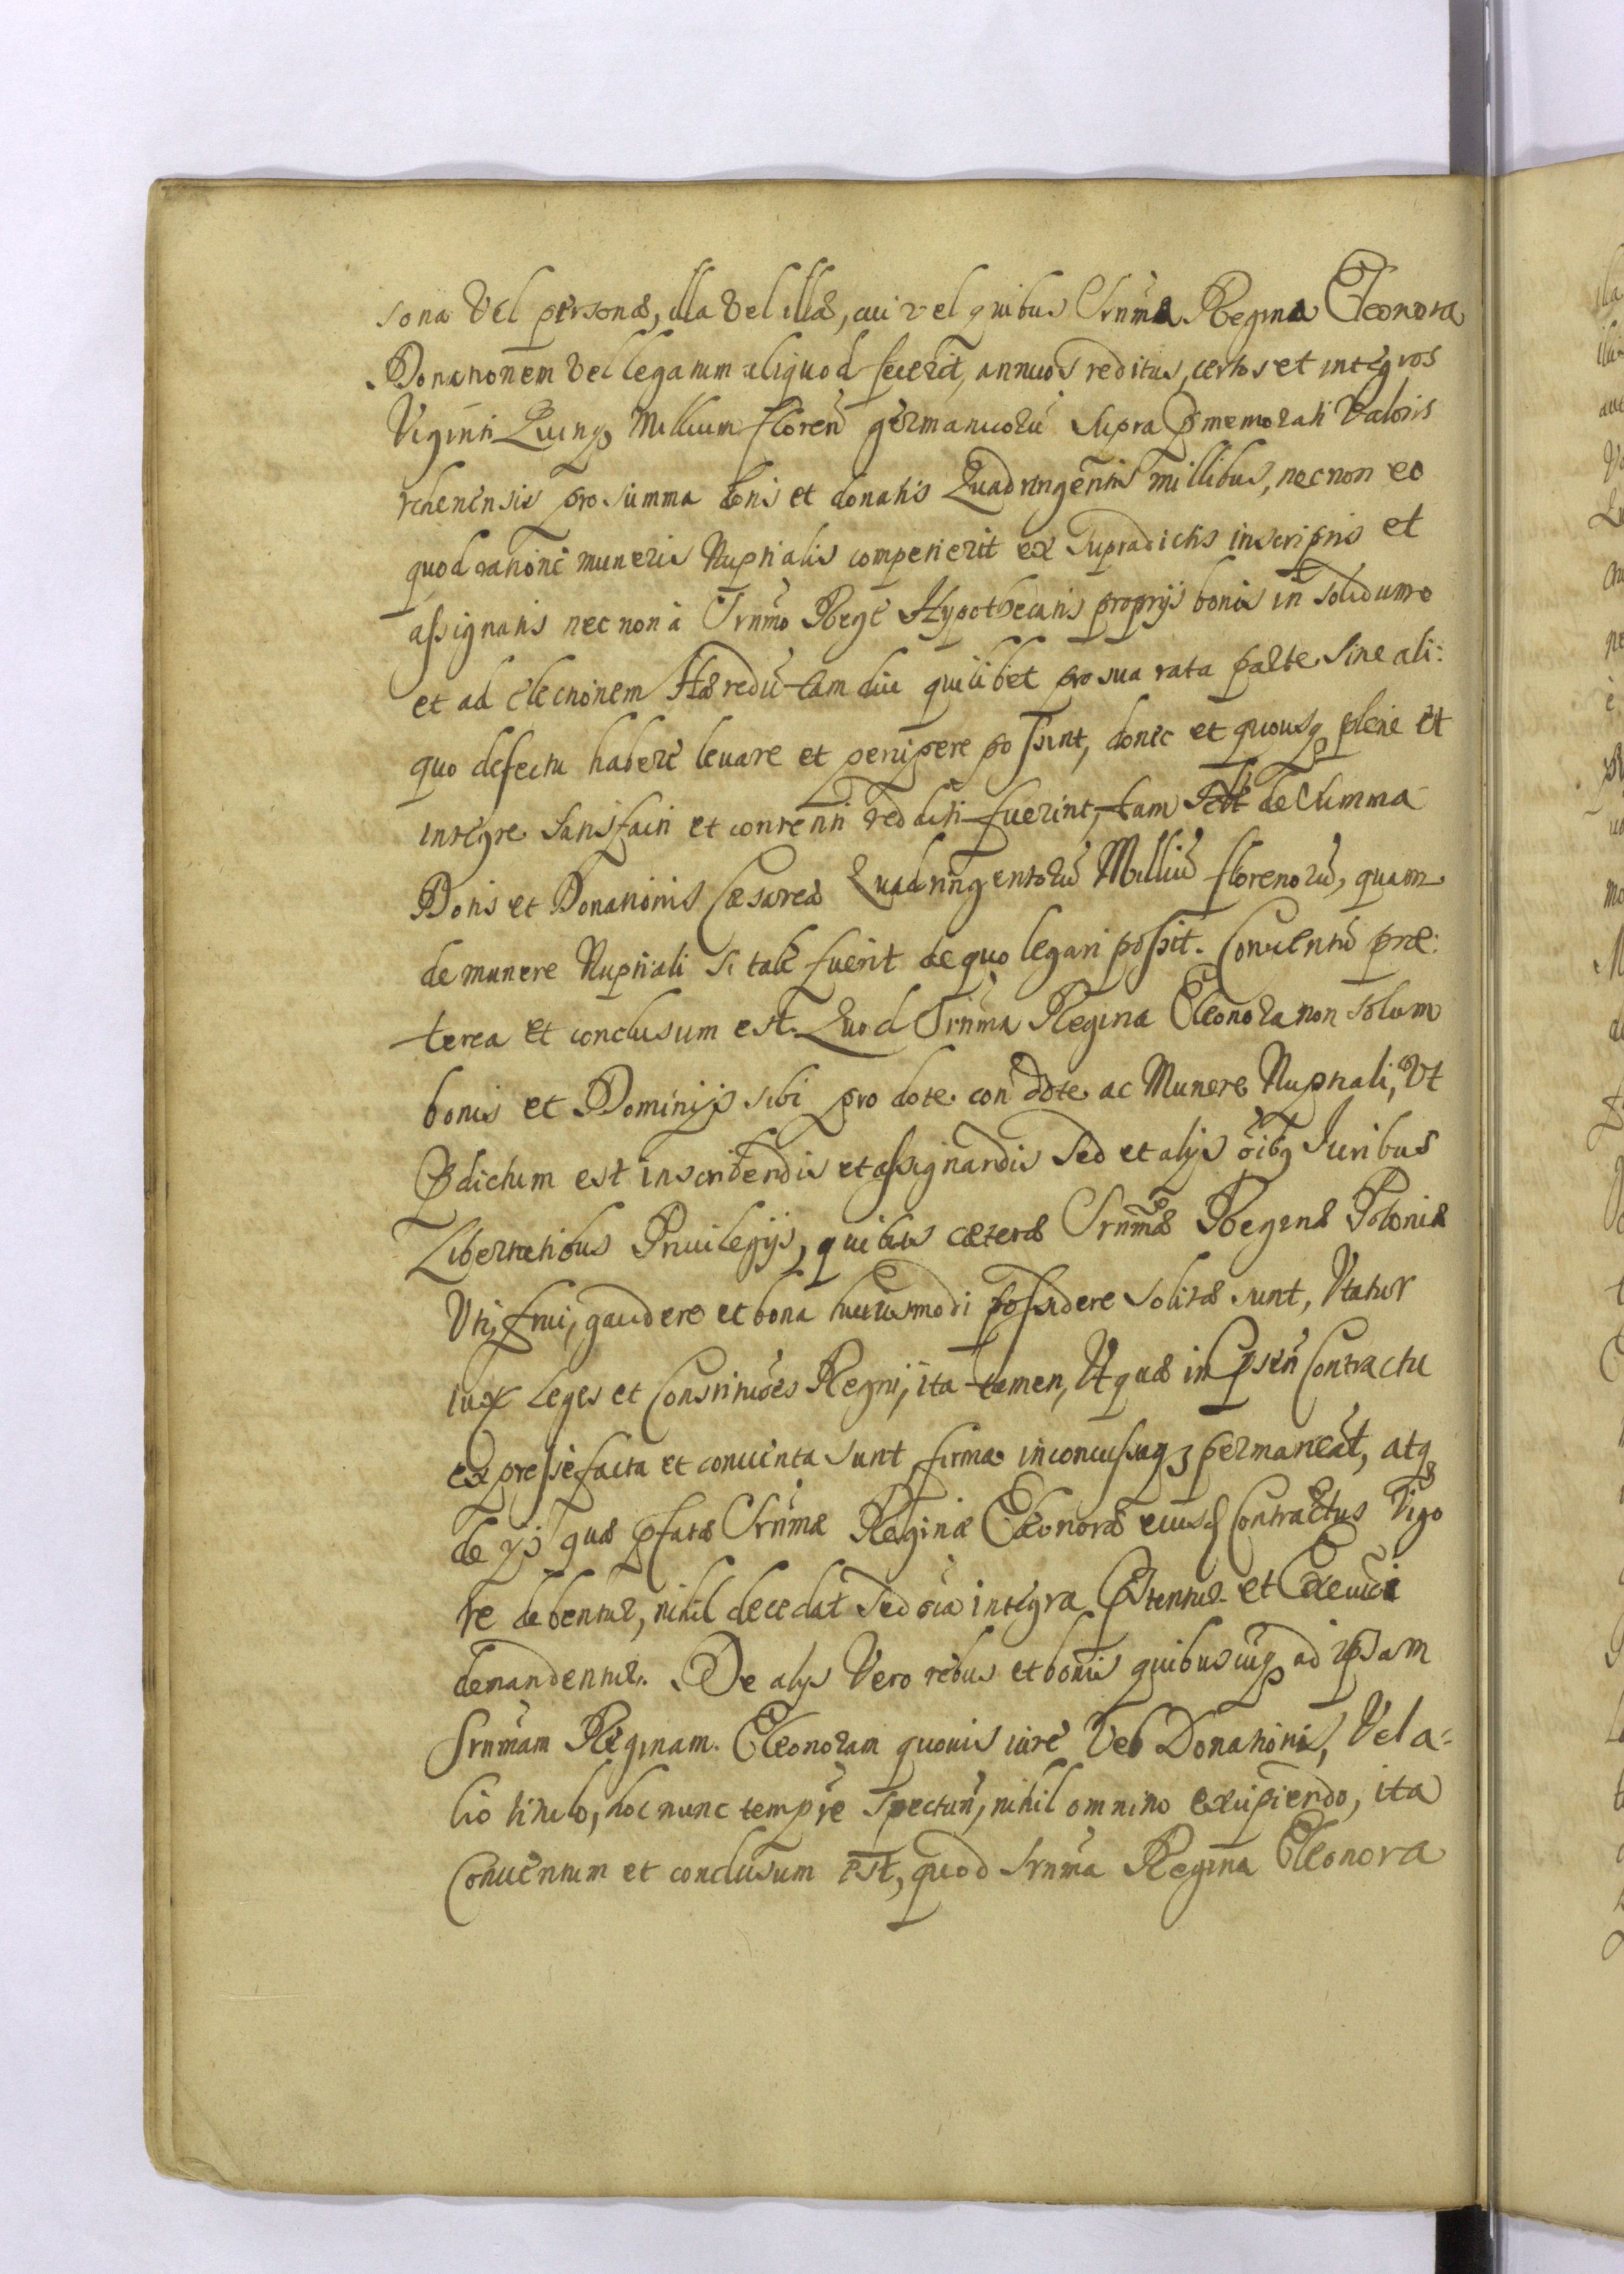 sona Vel personæ, illa Vel illæ, cui vel quibus Srnma Regina Eleonora
Donationem Vel legatum aliquod fecerit, annuos reditus, certos et integros
Viginti Quinq Millium floren̄ germanicorū supra p̄memorati Valoris
rehenensis pro summa dotis et donatis Quadringentis millibus, nec non eo
quod ratione muneris Nuptialis competierit ex supradictis inscriptis et
assignatis nec non à Srnmo Rege Hypothecatis proprijs bonis in solidum
et ad electionem Hæredū tam diu quilibet pro sua rata parte sine ali:
quo defectu habere levare et percipere possint, donec et quousq plene et
integre satisfacti et contenti redditi fuerint, tam de summa
Dotis et Donationis Cæsareæ Quadringentorū Milliū florenorū, quam
de munere Nuptiali si tale fuerit de quo legari possit. Conventū præ:
terea et conclusum est. Quod Srnma Regina Eleonora non solum
bonis et Dominijs sibi pro dote con dote ac Munere Nuptiali, Vt
p̄dictum est inscribendis et assignandis sed et alijs oībq Iuribus
Libertatibus Priuilegijs, quibus cæteræ Srnmæ Reginæ Poloniæ
Vti, frui, gaudere et bona huiusmodi possidere solitæ sunt, Vtatur
iux Leges et Constituōes Regni, ita tamen, Vt quæ in p̄sen̄ Contractu
expresse facta et conuenta sunt firma inconcussaq permaneāt, atq
de ijs quæ p̄fatæ Srnmæ Reginæ Eleonoræ eiusd Contractus Vigo
re debentur, nihil decedat sed oīa integra p̄stentur et Execuōi
demandentur. De alijs Vero rebus et bonis quibuscuq ad ipsam
Srnmam Reginam Eleonoram quouis iure Vel Donationis, Vel a:
lio titulo, hoc nunc tempre spectan̄, nihil omnino excipiendo, ita
Conuentum et conclusum est, quod Srnma Regina Eleonora